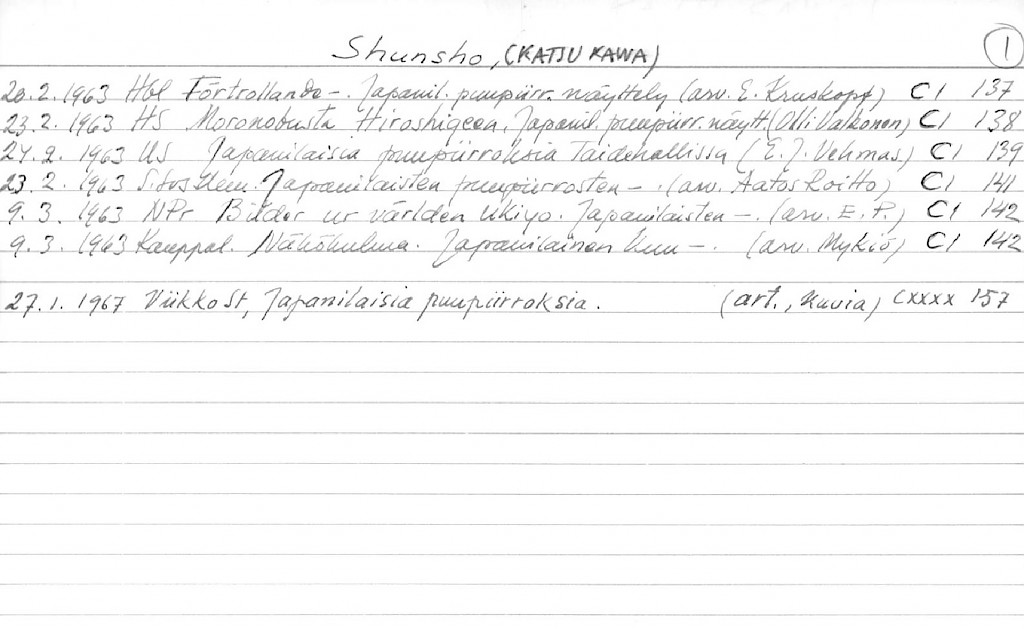 Shunsho, (KATSUKAWA) 1
20.2.1963 Hbl Förtrollande -. Japanil. puupiirr. näyttely (arv. E. Kruskopf) C1 137
23.2.1963 HS Moronobusta Hiroshigeen, Japanil. puupiirr. näytt. (Olli Valkonen) C1 138
24.2.1963 US Japanilaisia puupiirroksia Taidehallissa (E. J. Vehmas) C1 139
23.2.1963 S. Sos.Dem. Japanilaisten puupiirrosten -. (arv. Aatos Roitto) C1 141
9.3.1963 NPr Bilder ur världen Ukiyo. Japanilaisten -. (arv. E. P.) C1 142
9.3.1963 Kauppal. Näkökulma. Japanilainen kuu -. (arv. Mykiö) C1 142
27.1.1967 ViikkoSt, Japanilaisia puupiirroksia. (art., kuvia) CXXXX 157